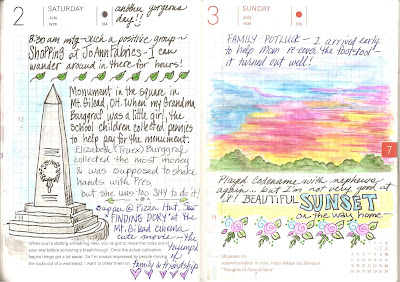 2 SATURDAY
July
W26
184
another gorgeous
day!!
8:30 am mtg - such a positive group -
Shopping at JoAnn Fabrics - I can
wander around in there for hours!
Monument in the square in
Mt. Gilead, OH. When my Grandma
Burggraf was a little girl, the
school children collected pennies
to help pay for the monument.
Elizabeth (Truex) Burggraf
collected the most money
& was supposed to shake
hands with Pres.
but she was too SHY to do it!
12
Supper @ Pizza Hut,
FINDING DORY at the
Mt. Gilead cinema
cute movie - the
triumph of
family & friendship
When you're starting something new, you've got to move the rocks out of
your way before achieving a breakthrough. Once the actual cultivation
begins things get a lot easier. So I'm always impressed by people moving
the rocks out of a wasteland. I want to cheer them on.
3 SUNDAY
July
W26
FAMILY POTLUCK - I arrived early
to help Mom re-cover the footstool -
it turned out well!
7
Played Codename with nephews
again... but I'm not very good at
it! BEAUTIFUL SUNSET
on the way home -